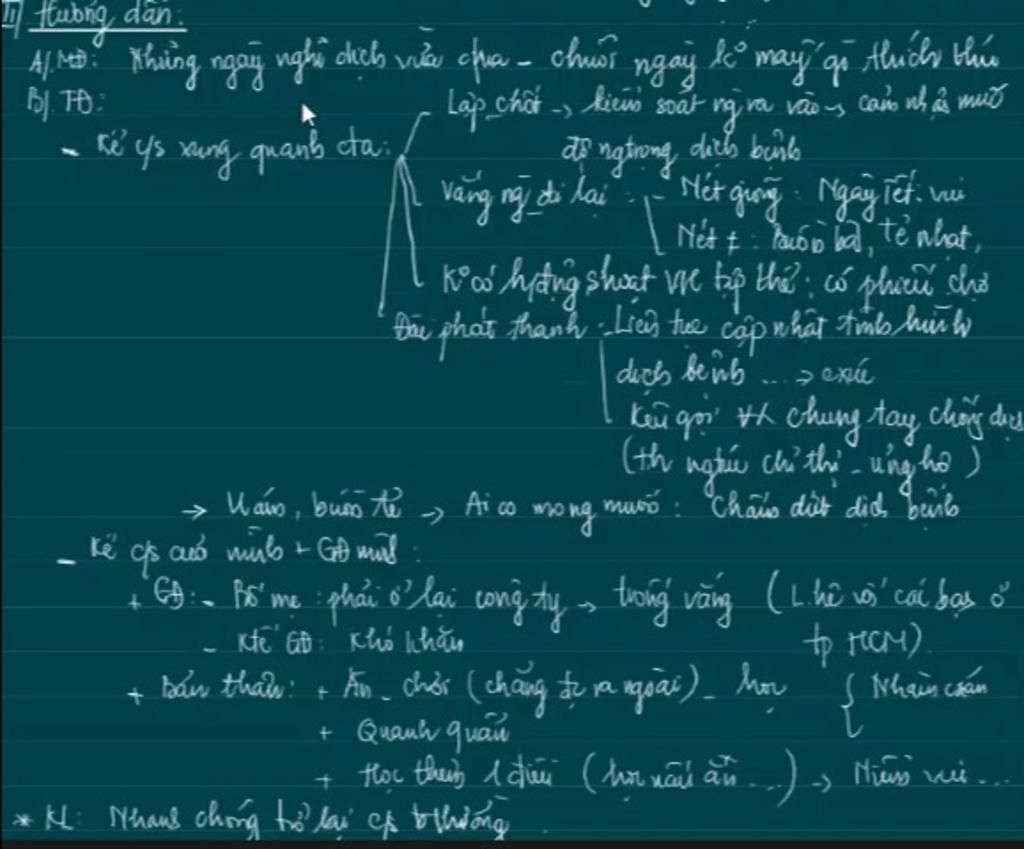 II) Hướng dẫn:
A/. MĐ: Những ngày nghỉ dịch vừa qua - chuỗi ngày kể mấy gì thích thú
B/. TĐ:
Lập chốt → kiểm soát ng ra vào → cảm nhận mức
- Kể c/s xung quanh cta:
độ ngtrọng dịch bệnh
Vắng ng đi lại - Nét giống: Ngày Tết: vui
Nét ≠: Buồn bã, tẻ nhạt,
K° có hđộng shoạt VH tập thể: có phiếu chợ
Đài phát thanh - Liên tục cập nhật tình hình
dịch bệnh ... → cxúc
Kêu gọi chung tay chống dịch
(th ngtúc chỉ thị - ủng hộ)
→ U ám, buồn tẻ → Ai co mong muốn: Chấm dứt dịch bệnh
- Kể c/s của mình + GĐ mình:
+ GĐ: - Bố mẹ: phải ở lại công ty → trống vắng (L.hệ với các bạn ở
- Ktế GĐ: Khó khăn
tp HCM)
+ Bản thân: + Ăn - chơi (chẳng đc ra ngoài) - học { Nhàm chán
+ Quanh quẩn
+ Học thêm 1 điều (học nấu ăn ...) → Niềm vui ...
* KL: Nhanh chóng trở lại c/s bthường